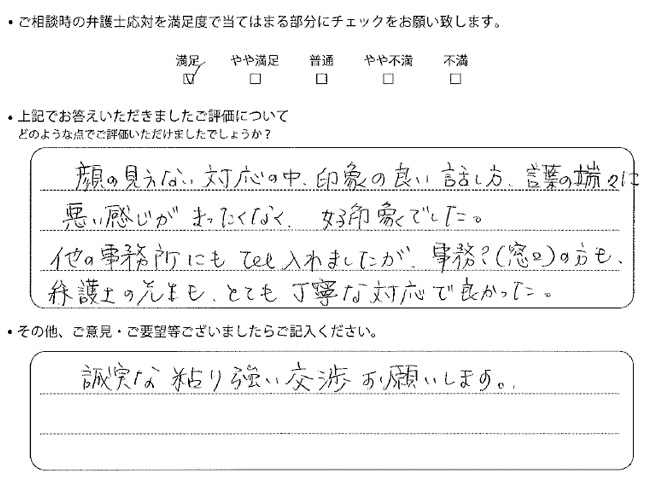 ・ご相談時の弁護士応対を満足度で当てはまる部分にチェックをお願い致します。
満足 やや満足 普通 やや不満 不満
・上記でお答えいただきましたご評価について
どのような点でご評価いただけましたでしょうか？
顔の見えない対応の中、印象の良い話し方、言葉の端々に
悪い感じがまったくなく、好印象でした。
他の事務所にもTEL入れましたが、事務?(窓口)の方も、
弁護士の先生も、とても丁寧な対応で良かった。
・その他、ご意見・ご要望等ございましたらご記入ください。
誠実な粘り強い交渉お願いします。